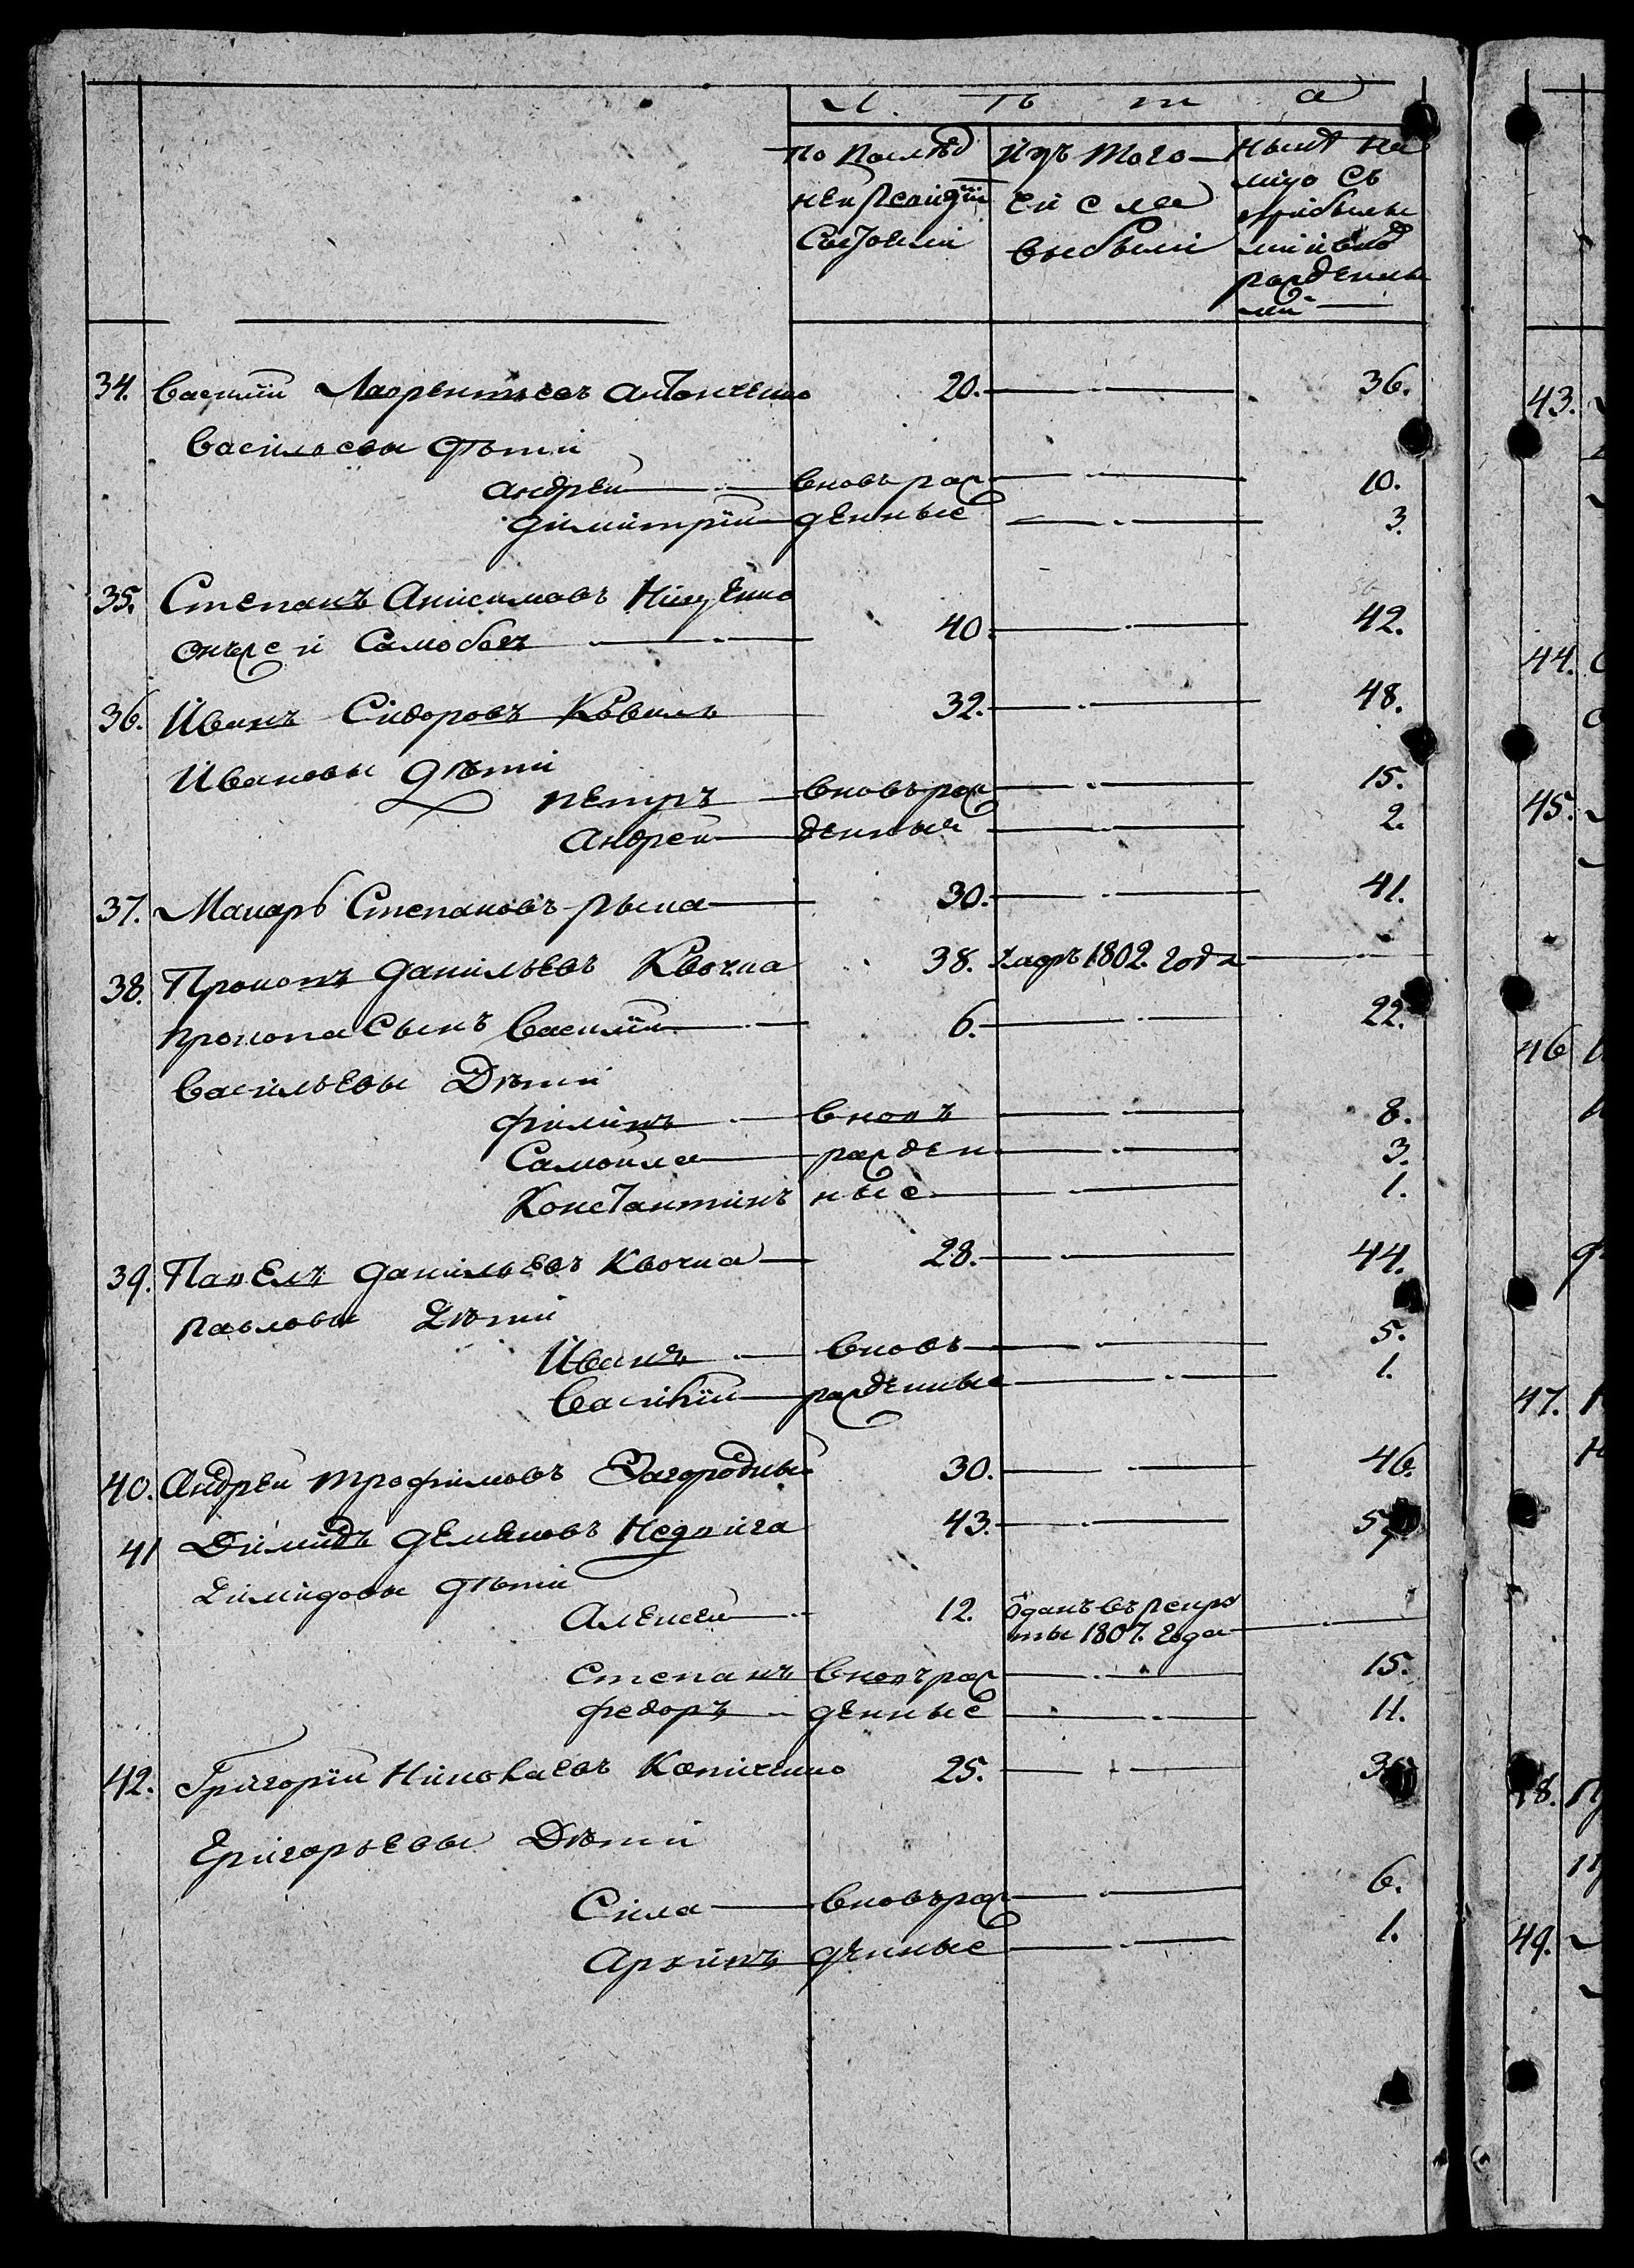 Л ѣ т а
по послѣд
ней ревизіи
состояли
изъ того
числа
выбыли
нынѣ на
лицо съ
прибылы
ми и вно
рожденны
ми
34. Василій Лаврентьевъ Антоненко 20. 36.
Васильевы дѣти
Андрей вновь рож 10.
Димитрій денные 3.
35. Степанъ Анисимовъ
онъ же и 40. 42.
36. Иванъ Сидоровъ Ковиль 32. 48.
Ивановы дѣти
Петръ вновь рож 15.
Андрей денные 2.
37. Макаръ Степановъ 30. 41.
38. Прокопъ Данильевъ Квочка 38. умре 1802. года
Прокопа сынъ Василій 6. 22.
Васильевы Дѣти
Филипъ вновъ 8.
Самойла рожден 3.
Константинъ ные 1.
39. Павелъ Данильевъ Квочка 28. 44.
Павловы Дѣти
Иванъ вновь 5.
Василій рожденные 1.
40. Андрей Трофимовъ Загородный 30. 46.
41 Димидъ Демяновъ 43. 59
Димидовы дѣти
Алексей 12. ѿданъ въ рекру
ты 1807. года
Степанъ вновъ рож 15.
Федоръ денные 11.
42. Григорій Николаевъ 25.
Григорьевы Дѣти
Сила вновь рож 6.
Архипъ денные 1.
43.
44.
45.
46
47.
48.
49.